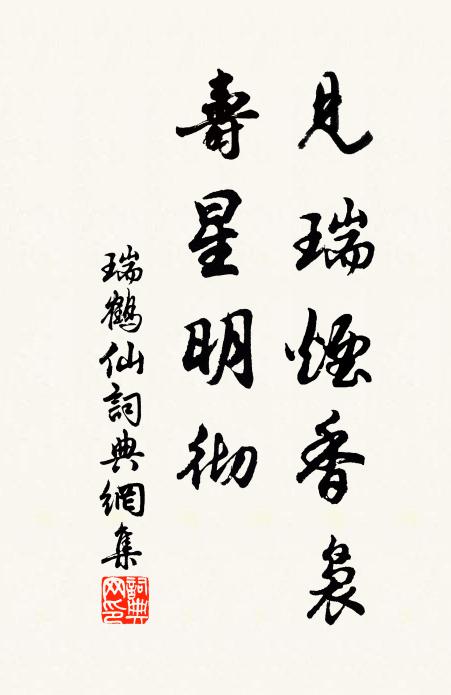 見瑞煙香裊
壽星明彻
瑞鶴仙詞典網集
詞典网印